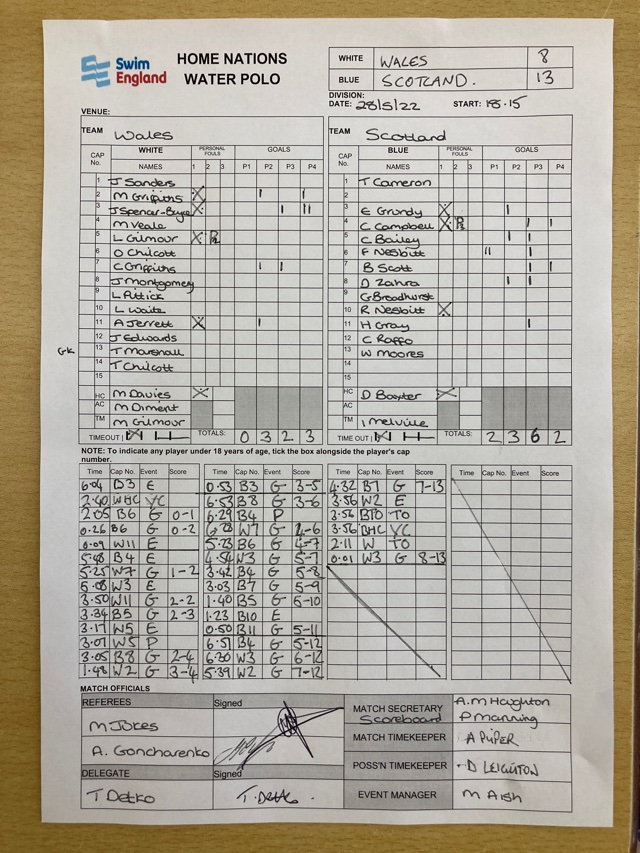 Swim England
HOME NATIONS
WATER POLO
WHITE WALES 8
BLUE SCOTLAND. 13
DIVISION:
DATE: 28/5/22 START: 18.15
VENUE:
TEAM Wales
TEAM Scotland
CAP No. WHITE NAMES PERSONAL FOULS 1 2 3 GOALS P1 P2 P3 P4
CAP No. BLUE NAMES PERSONAL FOULS 1 2 3 GOALS P1 P2 P3 P4
1 J Sanders
2 M Griffiths X
3 J Spencer-Bryce X
4 M Veale
5 L Gilmour X
6 O Chilcott
7 C Griffiths
8 J Montgomery
9 L Pittick
10 L Waite
11 A Jerrett X
12 J Edwards
GK 13 T Marshall
14 T Chilcott
15
HC M Davies X
AC M Diment
TM M Gilmour
TIMEOUT TOTALS: 0 3 2 3
1 T Cameron
2
3 E Grundy X
4 C Campbell X
5 C Bailey
6 F Nesbitt
7 B Scott
8 D Zahra
9 G Broadhurst
10 R Nesbitt X
11 H Gray
12 C Raffo
13 W Moores
14
15
HC D Baxter
AC
TM I Melville
TIME OUT TOTALS: 2 3 6 2
NOTE: To indicate any player under 18 years of age, tick the box alongside the player's cap number.
Time Cap No. Event Score
6.04 B3 E
2.40 WHC YC
2.05 B6 G 0-1
0.26 B6 G 0-2
W11 E
5.48 B4 E
5.25 W7 G 1-2
5.08 W3 E
3.50 W11 G 2-2
3.34 B5 G 2-3
3.17 W5 E
3.07 W5 P
3.05 B8 G 2-4
1.48 W2 G 3-4
Time Cap No. Event Score
0.53 B3 G 3-5
6.53 B8 G 3-6
6.29 B4 P
W7 G 4-6
5.23 B6 G 4-7
4.54 W3 G 5-7
3.42 B4 G 5-8
3.03 B7 G 5-9
1.40 B5 G 5-10
1.23 B10 E
0.50 B11 G 5-11
6.51 B4 G 5-12
6.30 W3 G 6-12
5.39 W2 G 7-12
Time Cap No. Event Score
4.32 B7 G 7-13
3.56 W2 E
3.56 BTO TO
3.56 BHC YC
2.11 W TO
0.01 W3 G 8-13
Time Cap No. Event Score
MATCH OFFICIALS
REFEREES Signed
M Jukes
A. Goncharenko
DELEGATE Signed
T Detko T. Detko.
MATCH SECRETARY A.M Haughton
Scoreboard P Manning
MATCH TIMEKEEPER A PIPER
POSS'N TIMEKEEPER D LEIGHTON
EVENT MANAGER M Aish